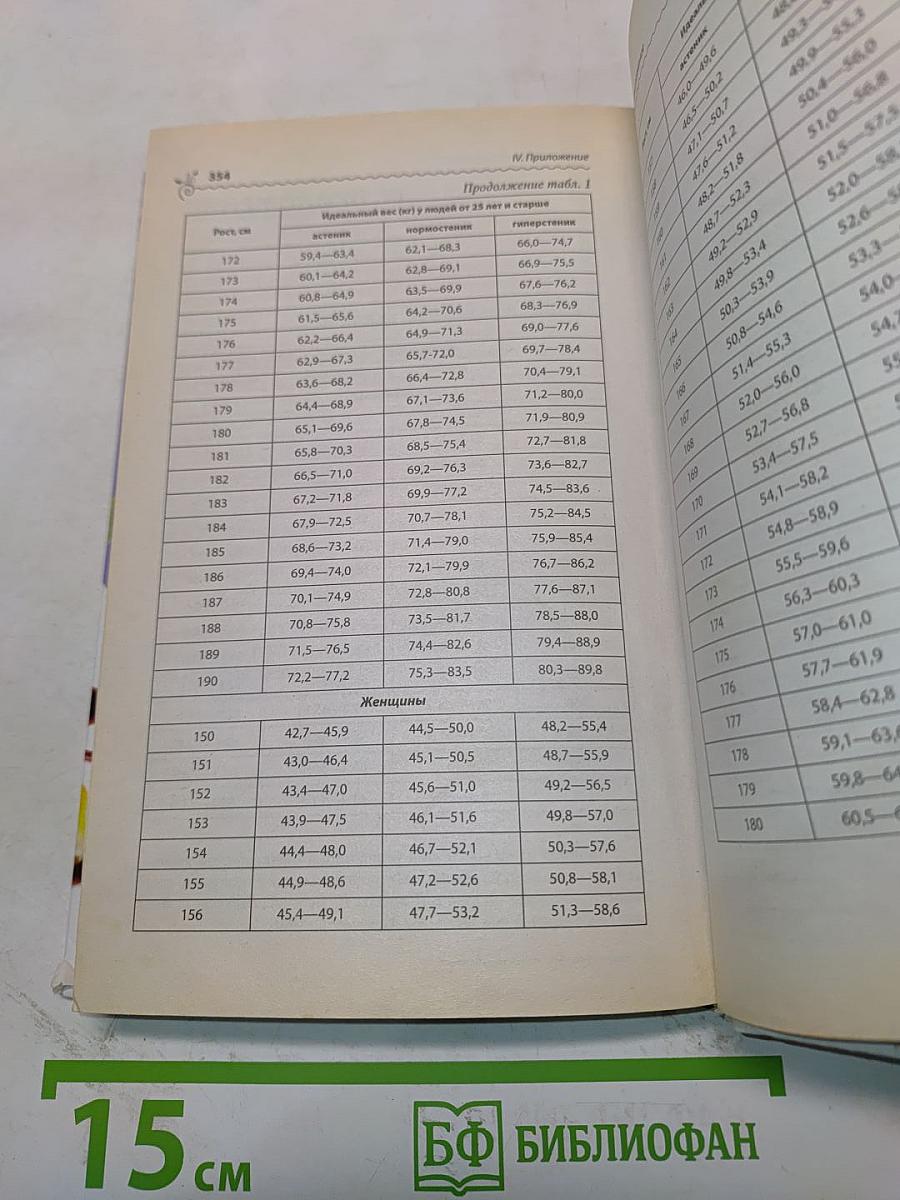 354
IV. Приложение
Продолжение табл. 1
Рост, см Идеальный вес (кг) у людей от 25 лет и старше
астеник нормостеник гиперстеник
172 59,4—63,4 62,1—68,3 66,0—74,7
173 60,1—64,2 62,8—69,1 66,9—75,5
174 60,8—64,9 63,5—69,9 67,6—76,2
175 61,5—65,6 64,2—70,6 68,3—76,9
176 62,2—66,4 64,9—71,3 69,0—77,6
177 62,9—67,3 65,7-72,0 69,7—78,4
178 63,6—68,2 66,4—72,8 70,4—79,1
179 64,4—68,9 67,1—73,6 71,2—80,0
180 65,1—69,6 67,8—74,5 71,9—80,9
181 65,8—70,3 68,5—75,4 72,7—81,8
182 66,5—71,0 69,2—76,3 73,6—82,7
183 67,2—71,8 69,9—77,2 74,5—83,6
184 67,9—72,5 70,7—78,1 75,2—84,5
185 68,6—73,2 71,4—79,0 75,9—85,4
186 69,4—74,0 72,1—79,9 76,7—86,2
187 70,1—74,9 72,8—80,8 77,6—87,1
188 70,8—75,8 73,5—81,7 78,5—88,0
189 71,5—76,5 74,4—82,6 79,4—88,9
190 72,2—77,2 75,3—83,5 80,3—89,8
Женщины
150 42,7—45,9 44,5—50,0 48,2—55,4
151 43,0—46,4 45,1—50,5 48,7—55,9
152 43,4—47,0 45,6—51,0 49,2—56,5
153 43,9—47,5 46,1—51,6 49,8—57,0
154 44,4—48,0 46,7—52,1 50,3—57,6
155 44,9—48,6 47,2—52,6 50,8—58,1
156 45,4—49,1 47,7—53,2 51,3—58,6
астеник
46,0—49,6 49,3—
46,5—50,2 49,9—55,3
47,1—50,7 50,4—56,0
47,6—51,2 51,0—56,8
48,2—51,8 51,5—57,5
48,7—52,3 52,0—58,
162 49,2—52,9 52,6—
163 49,8—53,4 53,3—
164 50,3—53,9 54,0—
165 50,8—54,6 54,7
166 51,4—55,3 55
167 52,0—56,0
168 52,7—56,8
169 53,4—57,5
170 54,1—58,2
171 54,8—58,9
172 55,5—59,6
173 56,3—60,3
174 57,0—61,0
175 57,7—61,9
176 58,4—62,8
177 59,1—63,6
178 59,8—64
179 60,5—6
180
15 см
БФ БИБЛИОФАН